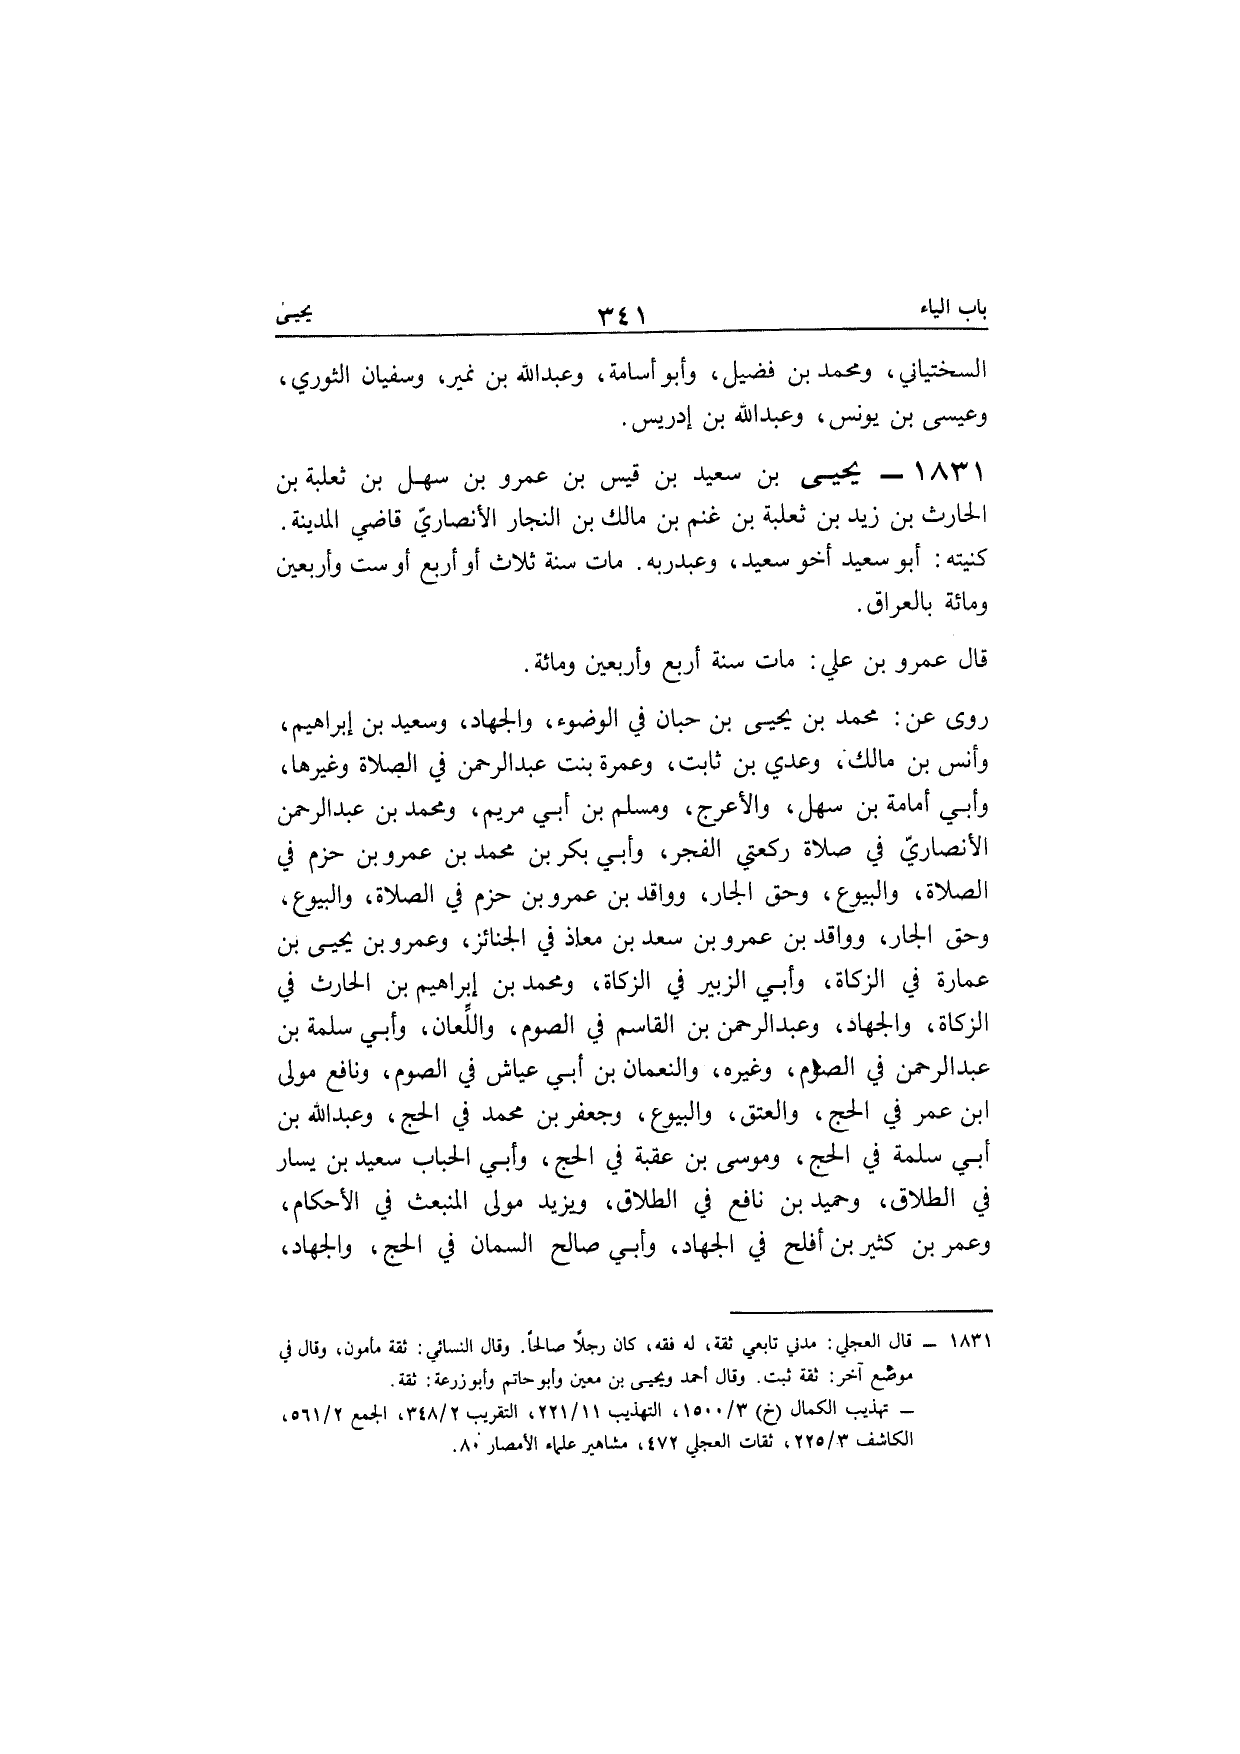 باب الياء ٣٤١ يحيىٰ
السختياني، ومحمد بن فضيل، وأبو أسامة، وعبدالله بن نمير، وسفيان الثوري،
وعيسى بن يونس، وعبدالله بن إدريس.
١٨٣١ ــ يحيـى بن سعيد بن قيس بن عمرو بن سهـل بن ثعلبة بن
الحارث بن زيد بن ثعلبة بن غنم بن مالك بن النجار الأنصاريّ قاضي المدينة.
كنيته: أبو سعيد أخو سعيد، وعبدربه. مات سنة ثلاث أو أربع أو ست وأربعين
ومائة بالعراق.
قال عمرو بن علي: مات سنة أربع وأربعين ومائة.
روى عن: محمد بن يحيـى بن حبان في الوضوء، والجهاد، وسعيد بن إبراهيم،
وأنس بن مالك، وعدي بن ثابت، وعمرة بنت عبدالرحمن في الصلاة وغيرها،
وأبـي أمامة بن سهل، والأعرج، ومسلم بن أبـي مريم، ومحمد بن عبدالرحمن
الأنصاريّ في صلاة ركعتي الفجر، وأبـي بكر بن محمد بن عمرو بن حزم في
الصلاة، والبيوع، وحق الجار، وواقد بن عمرو بن حزم في الصلاة، والبيوع،
وحق الجار، وواقد بن عمرو بن سعد بن معاذ في الجنائز، وعمرو بن يحيـى بن
عمارة في الزكاة، وأبـي الزبير في الزكاة، ومحمد بن إبراهيم بن الحارث في
الزكاة، والجهاد، وعبدالرحمن بن القاسم في الصوم، واللِّعان، وأبـي سلمة بن
عبدالرحمن في الصوم، وغيره، والنعمان بن أبـي عياش في الصوم، ونافع مولى
ابن عمر في الحج، والعتق، والبيوع، وجعفر بن محمد في الحج، وعبدالله بن
أبـي سلمة في الحج، وموسى بن عقبة في الحج، وأبـي الحباب سعيد بن يسار
في الطلاق، وحميد بن نافع في الطلاق، ويزيد مولى المنبعث في الأحكام،
وعمر بن كثير بن أفلح في الجهاد، وأبـي صالح السمان في الحج، والجهاد،
١٨٣١ ــ قال العجلي: مدني تابعي ثقة، له فقه، كان رجلًا صالحاً. وقال النسائي: ثقة مأمون، وقال في
موضع آخر: ثقة ثبت. وقال أحمد ويحيـى بن معين وأبو حاتم وأبو زرعة: ثقة.
ــ تهذيب الكمال (خ) ١٥٠٠/٣، التهذيب ٢٢١/١١، التقريب ٣٤٨/٢، الجمع ٥٦١/٢،
الكاشف ٢٢٥/٣، ثقات العجلي ٤٧٢، مشاهير علماء الأمصار ٨٠.